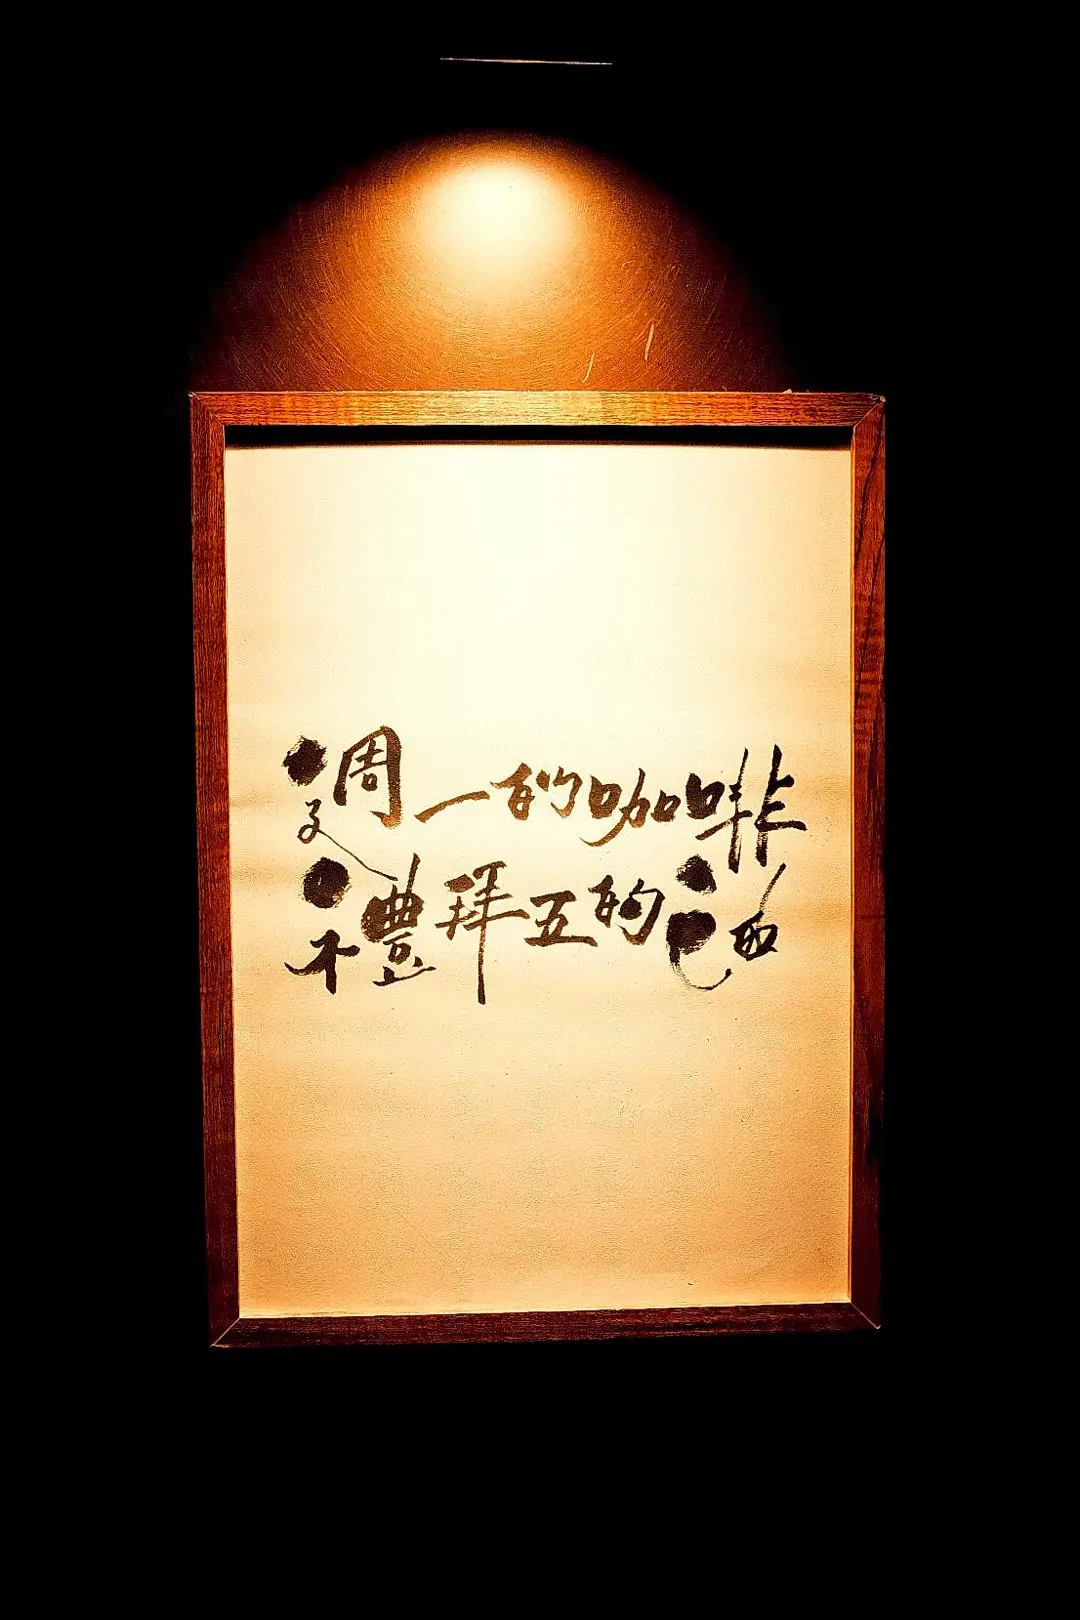 週一的咖啡
禮拜五的酒